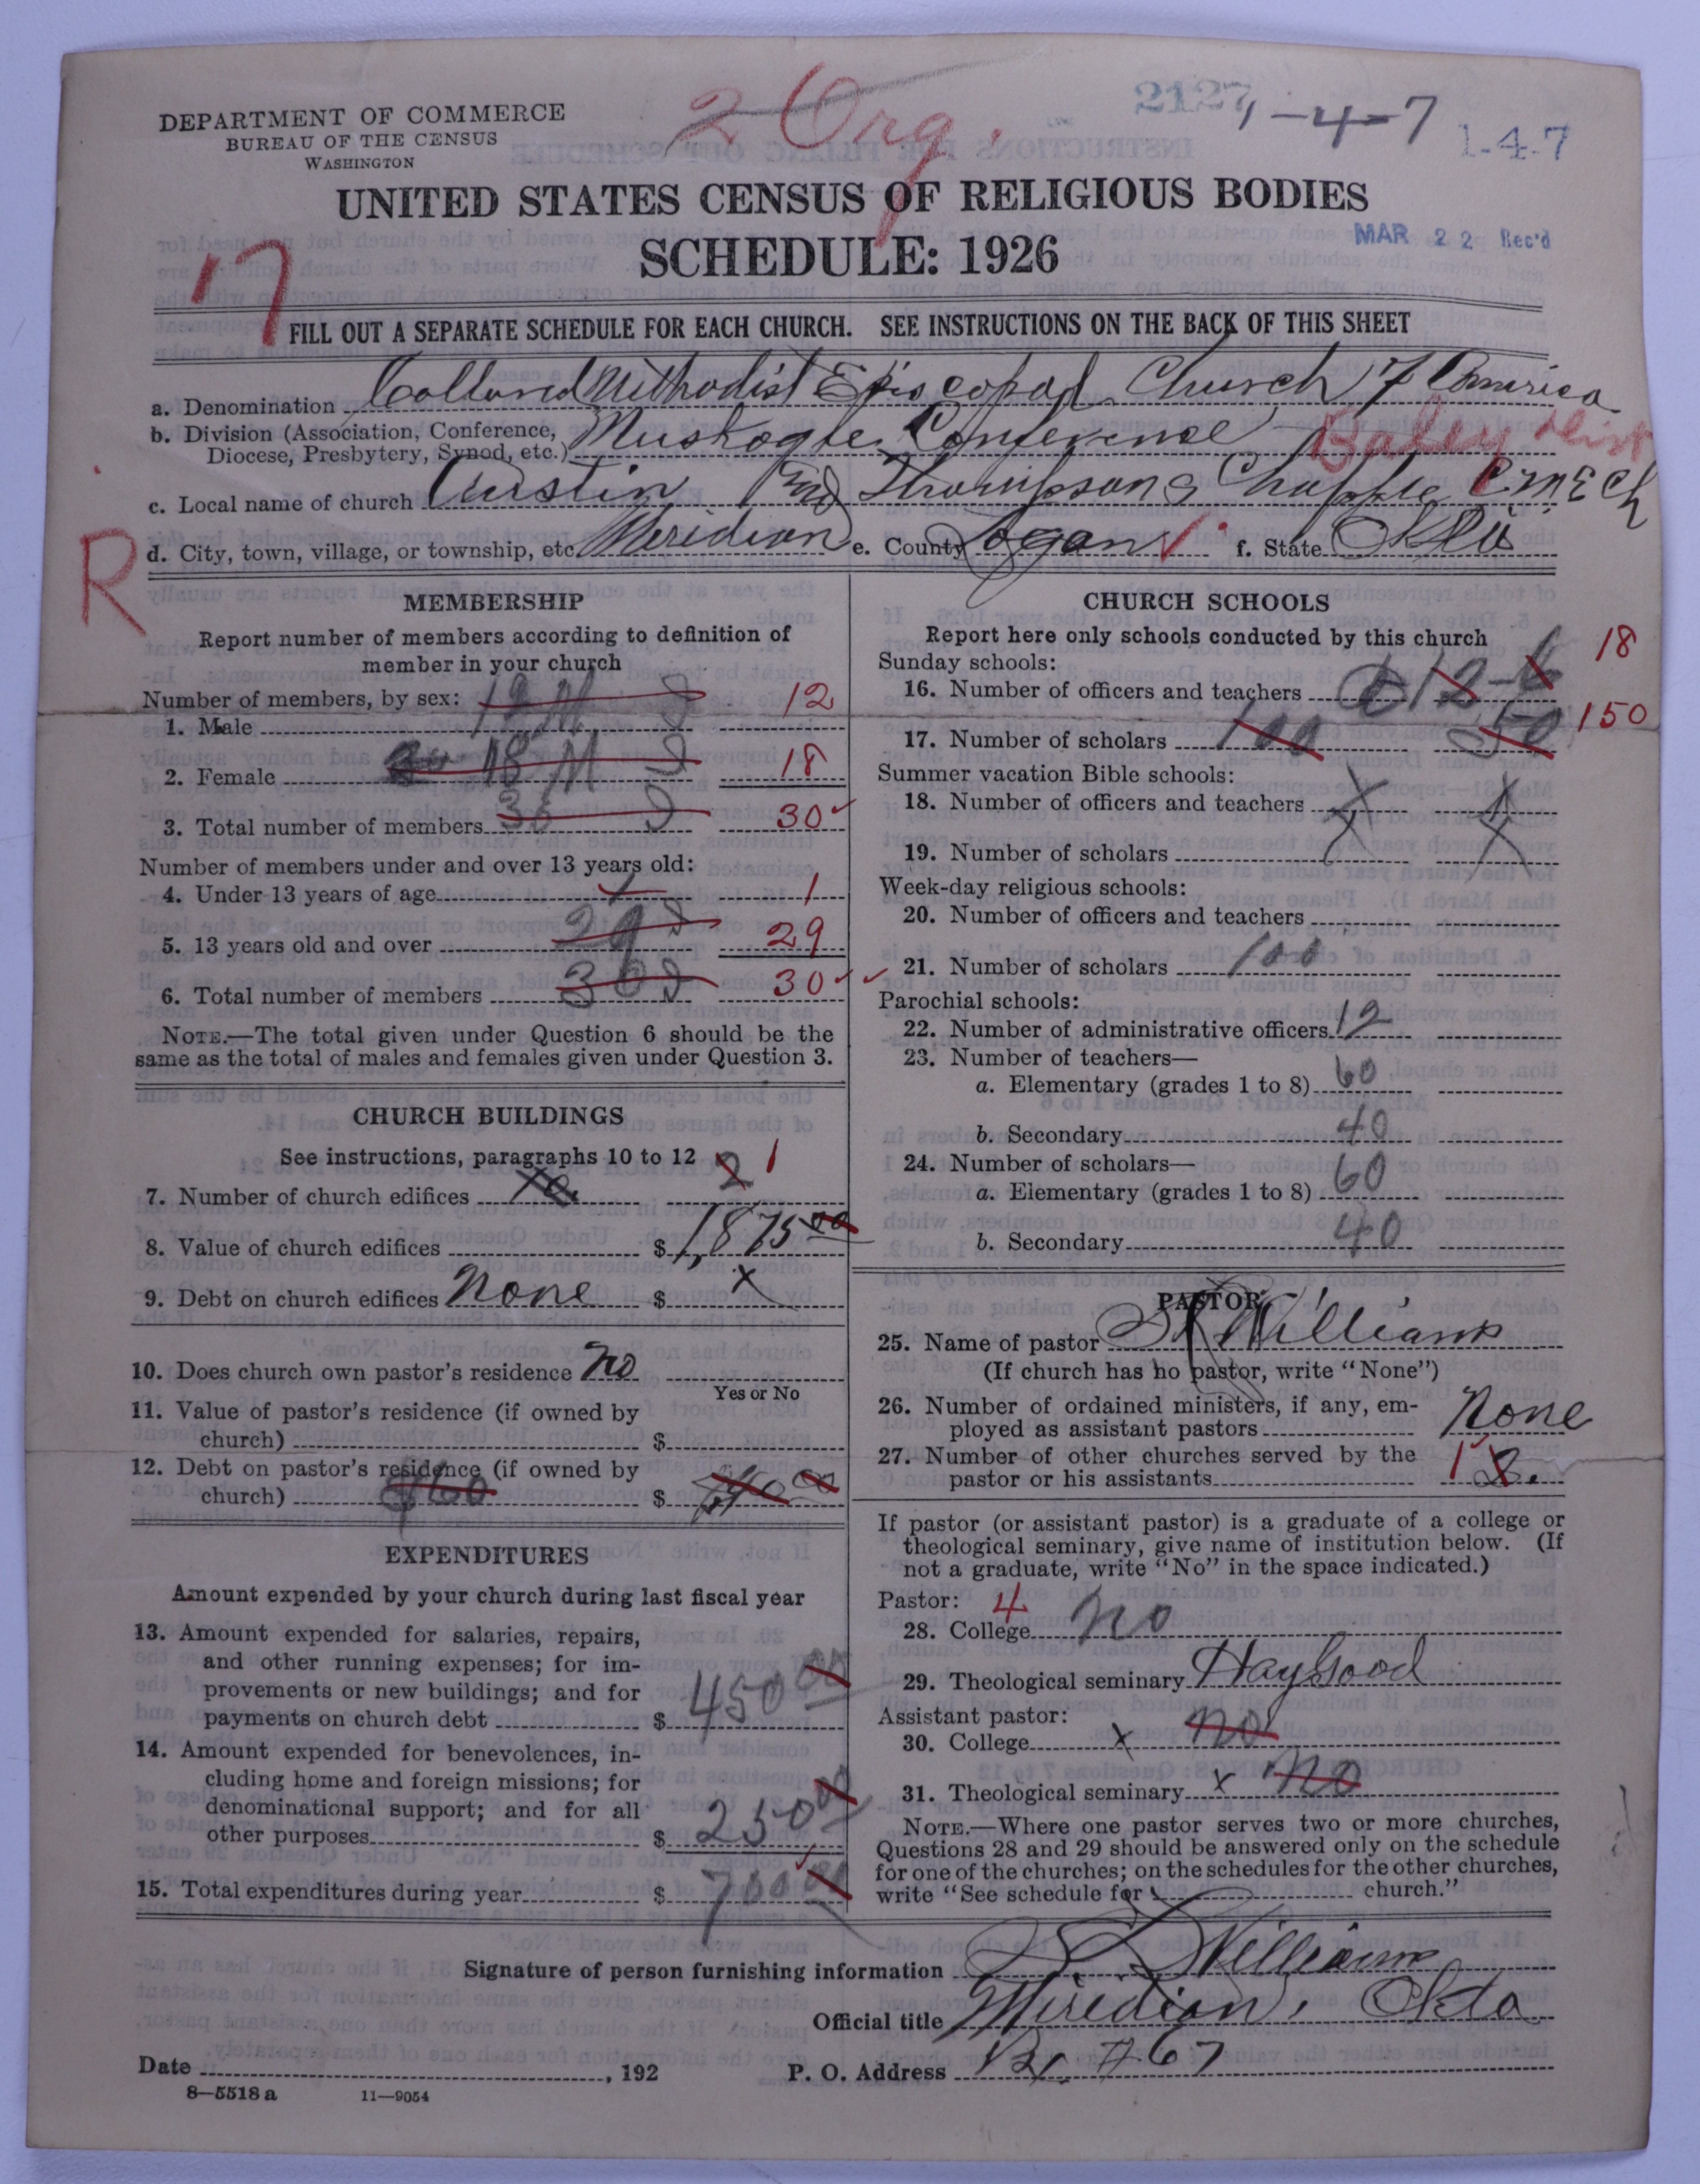 2 Org.
2127
1-4-7
1-4-7
DEPARTMENT OF COMMERCE
BUREAU OF THE CENSUS
WASHINGTON
UNITED STATES CENSUS OF RELIGIOUS BODIES
SCHEDULE: 1926
MAR 22 Rec'd
17
FILL OUT A SEPARATE SCHEDULE FOR EACH CHURCH. SEE INSTRUCTIONS ON THE BACK OF THIS SHEET
a. Denomination Collored Methodist Episcopal Church of America
b. Division (Association, Conference, Diocese, Presbytery, Synod, etc.) Muskogee Conference
c. Local name of church Austin and Thompsons Chapple C.M.E Ch
d. City, town, village, or township, etc. Meridian e. County Logan f. State Okla
R
MEMBERSHIP
Report number of members according to definition of
member in your church
Number of members, by sex:
1. Male 12 M 12
2. Female 18 M 18
3. Total number of members 30 30
Number of members under and over 13 years old:
4. Under 13 years of age 1 1
5. 13 years old and over 29 29
6. Total number of members 30 30
NOTE.—The total given under Question 6 should be the
same as the total of males and females given under Question 3.
CHURCH BUILDINGS
See instructions, paragraphs 10 to 12
7. Number of church edifices 2 1
8. Value of church edifices $ 1,875 00
9. Debt on church edifices None $ x
10. Does church own pastor's residence No
Yes or No
11. Value of pastor's residence (if owned by
church) $
12. Debt on pastor's residence (if owned by
church) $
EXPENDITURES
Amount expended by your church during last fiscal year
13. Amount expended for salaries, repairs,
and other running expenses; for im-
provements or new buildings; and for
payments on church debt $ 450 00
14. Amount expended for benevolences, in-
cluding home and foreign missions; for
denominational support; and for all
other purposes $ 250 00
15. Total expenditures during year $ 700 00
CHURCH SCHOOLS
Report here only schools conducted by this church
Sunday schools:
16. Number of officers and teachers 12 6 18
17. Number of scholars 100 50 150
Summer vacation Bible schools:
18. Number of officers and teachers x x
19. Number of scholars x x
Week-day religious schools:
20. Number of officers and teachers
21. Number of scholars 100
Parochial schools:
22. Number of administrative officers 12
23. Number of teachers—
a. Elementary (grades 1 to 8) 60
b. Secondary 40
24. Number of scholars—
a. Elementary (grades 1 to 8) 60
b. Secondary 40
PASTOR
25. Name of pastor Williams
(If church has no pastor, write "None")
26. Number of ordained ministers, if any, em-
ployed as assistant pastors None
27. Number of other churches served by the
pastor or his assistants 1 2.
If pastor (or assistant pastor) is a graduate of a college or
theological seminary, give name of institution below. (If
not a graduate, write "No" in the space indicated.)
Pastor: 4
28. College No
29. Theological seminary Haygood
Assistant pastor:
30. College x No
31. Theological seminary x No
NOTE.—Where one pastor serves two or more churches,
Questions 28 and 29 should be answered only on the schedule
for one of the churches; on the schedules for the other churches,
write "See schedule for church."
Signature of person furnishing information Williams
Official title Meridian, Okla
Date , 192 P. O. Address Bx. #67
8—5518 a 11—9054